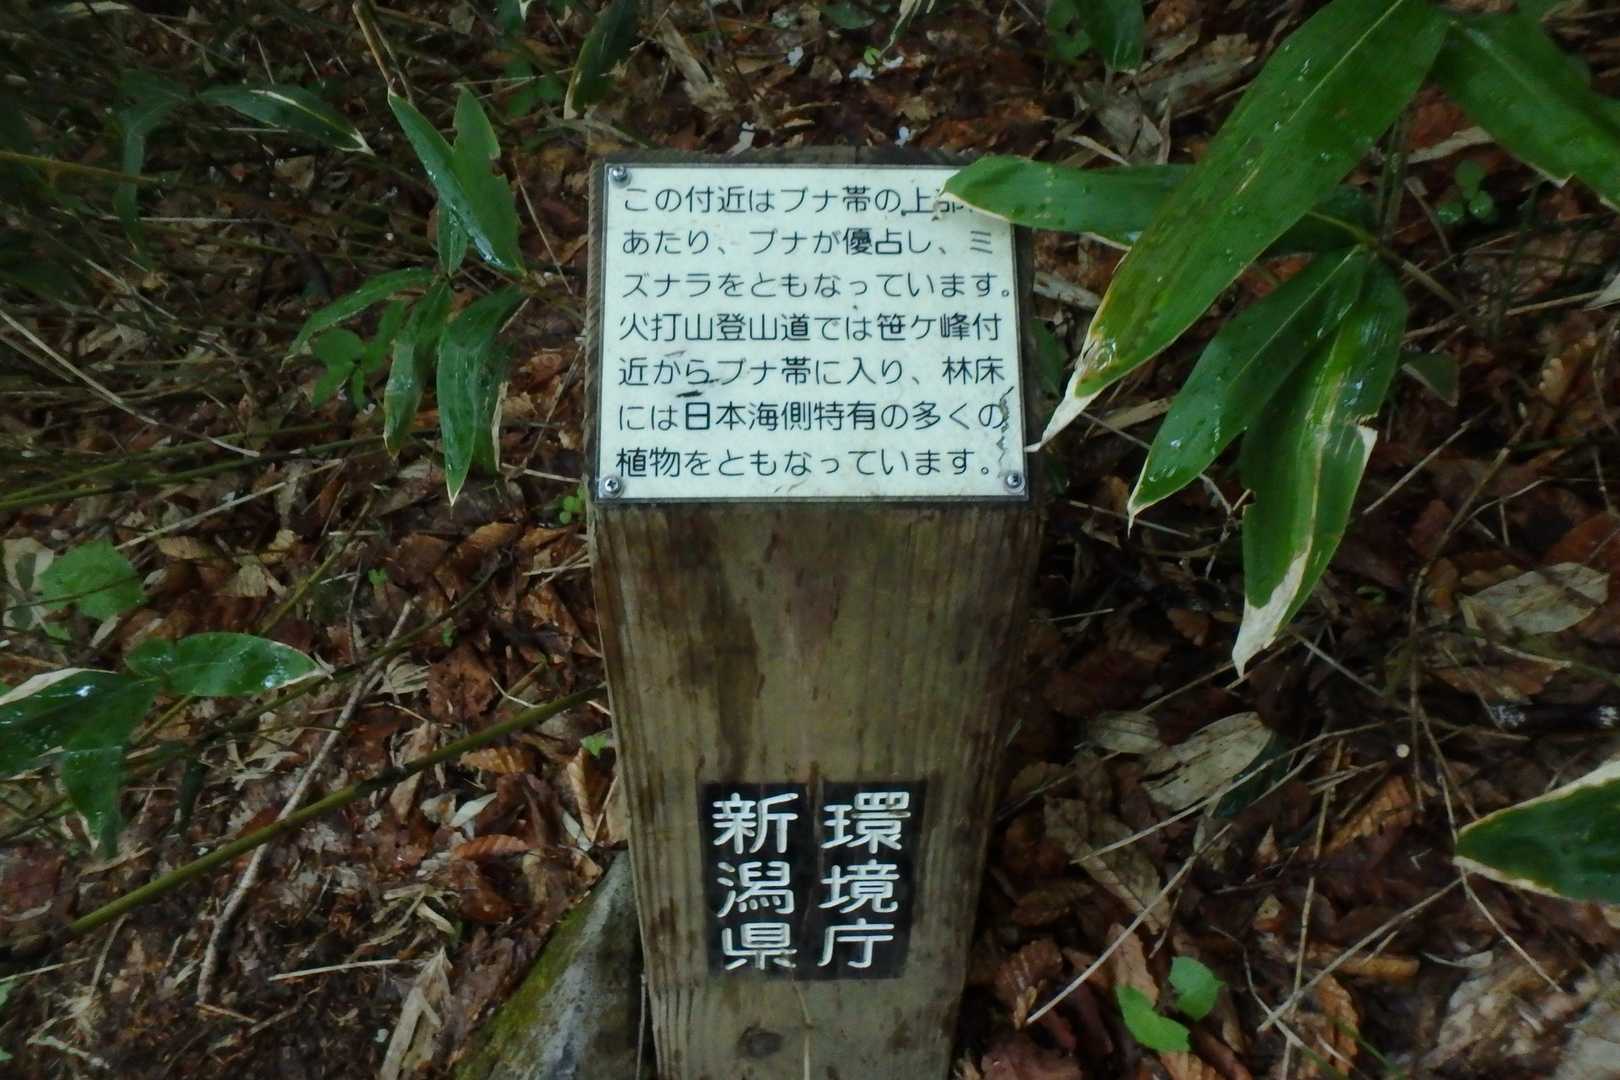 この付近はブナ帯の上部
あたり、ブナが優占し、ミ
ズナラをともなっています。
火打山登山道では笹ケ峰付
近からブナ帯に入り、林床
には日本海側特有の多くの
植物をともなっています。
環境庁
新潟県